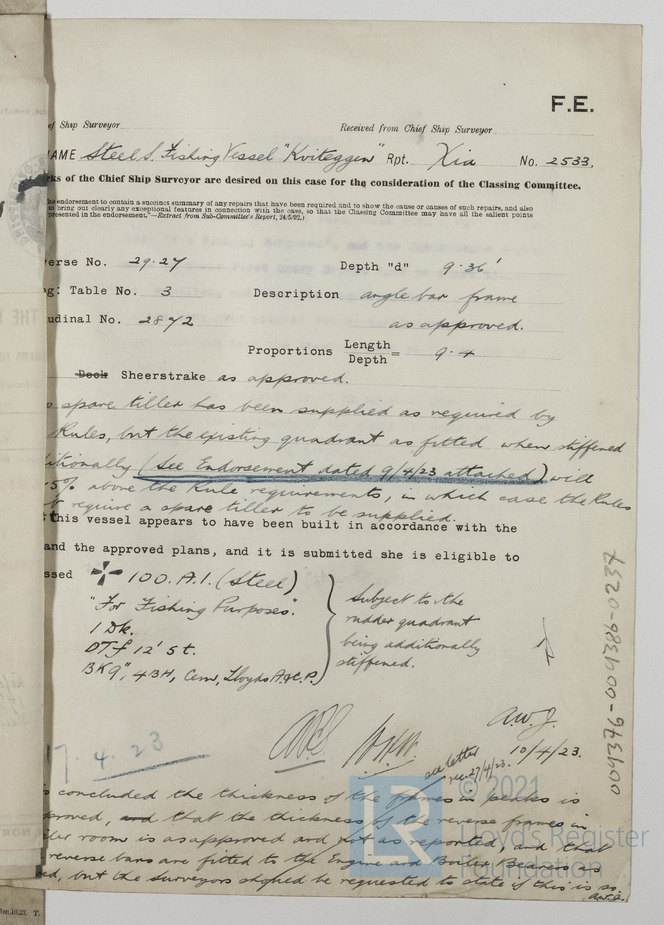 F.E.
ef Ship Surveyor Received from Chief Ship Surveyor
NAME Steel S. Fishing Vessel "Kviteggen" Rpt. Xia No. 2533.
ks of the Chief Ship Surveyor are desired on this case for the consideration of the Classing Committee.
he endorsement to contain a succinct summary of any repairs that have been required and to show the cause or causes of such repairs, and also
to bring out clearly any exceptional features in connection with the case, so that the Classing Committee may have all the salient points
presented in the endorsement."—Extract from Sub-Committee's Report, 24/5/92.)
verse No. 29.27 Depth "d" 9.36'
ng: Table No. 3 Description angle bar frame
udinal No. 2872 as approved.
Proportions Length
Depth = 9.4
Deck Sheerstrake as approved.
spare tiller has been supplied as required by
Rules, but the existing quadrant as fitted when stiffened
itionally (See Endorsement dated 9/4/23 attached) will
5% above the Rule requirements, in which case the Rules
require a spare tiller to be supplied.
this vessel appears to have been built in accordance with the
and the approved plans, and it is submitted she is eligible to
ssed 100.A.1. (Steel)
"For Fishing Purposes".
1 Dk.
DTf 12' St.
BK 9", 4BH, Cem, Lloyds A & C.P.
Subject to the
rudder quadrant
being additionally
stiffened.
A.W.J.
10/4/23.
17.4.23
see letter
rec. 27/4/23.
s concluded the thickness of the frames in peaks is
proved, and that the thickness of the reverse frames in
iler room is as approved and not as reported, and that
reverse bars are fitted to the Engine and Boiler Beams as
ed, but the Surveyors should be requested to state if this is so.
A.W.J.
004376-004386-0237
LR
© 2021
Lloyd's Register
Foundation